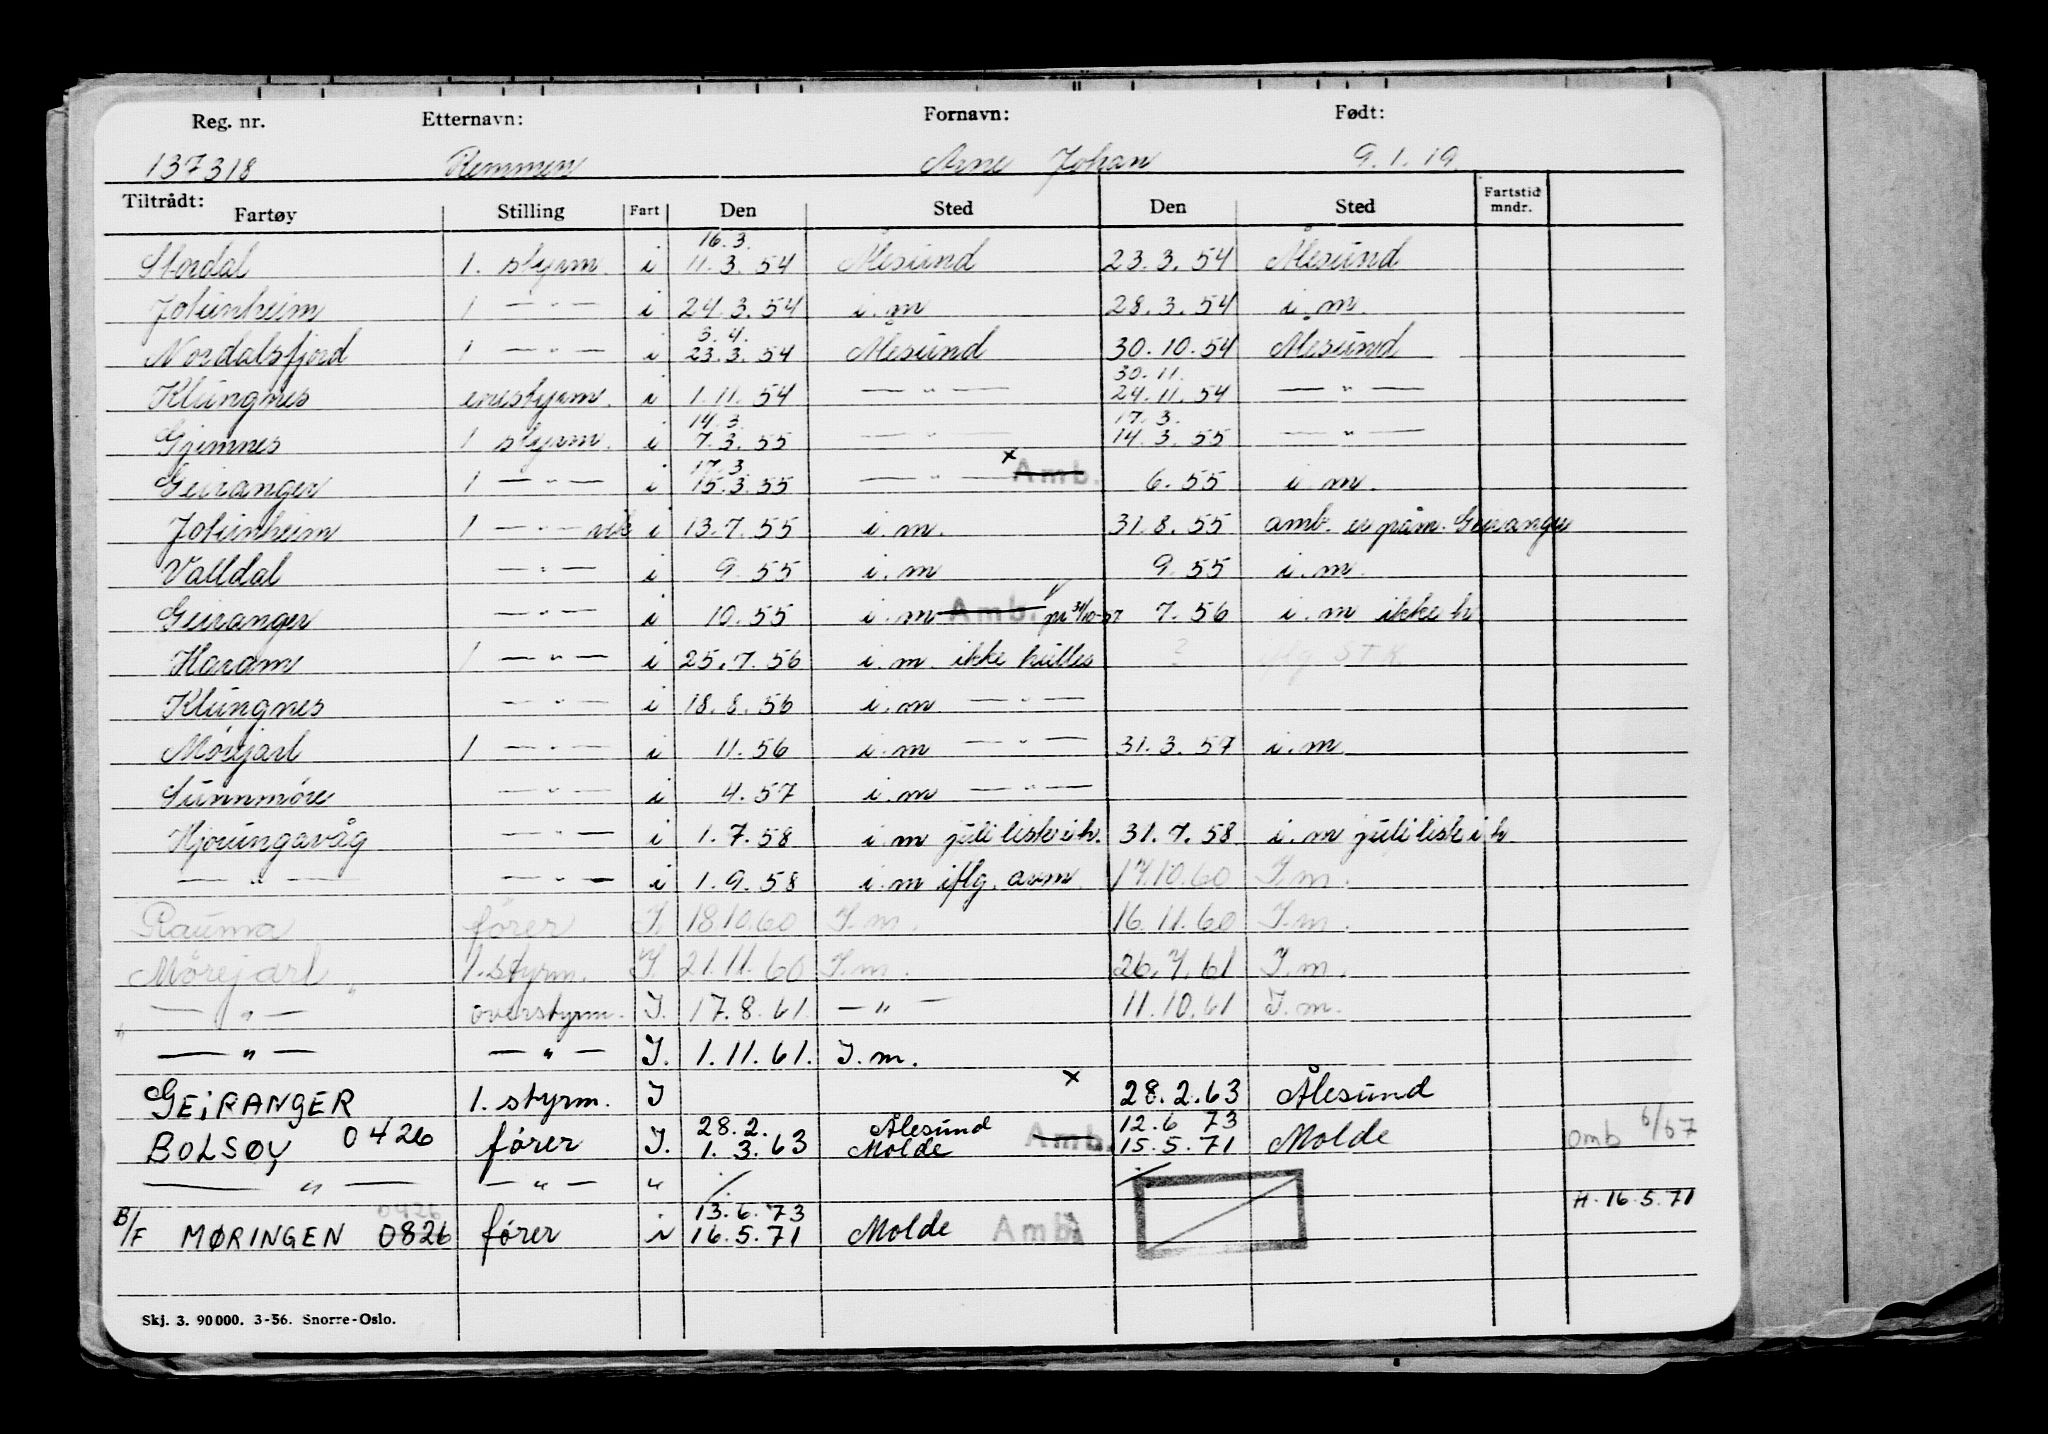 Reg. nr. Etternavn: Fornavn: Født:
137318 Remmen Arne Johan 9.1.19.
Tiltrådt:
Fartøy Stilling Fart Den Sted Den Sted Fartstid mndr.
16.3.
Stordal 1. styrm. i 11.3.54 Ålesund 23.3.54 Ålesund
Jotunheim 1 — " — i 24.3.54 i.m 28.3.54 i.m.
3.4.
Nordalsfjord 1 — " — i 23.3.54 Ålesund 30.10.54 Ålesund
30.11.
Klungnes enestyrm. i 1.11.54 — " — 24.11.54 — " —
14.3. 17.3.
Gjemnes 1 styrm. i 7.3.55 — " — 14.3.55 — " —
17.3. x
Geiranger 1 — " — i 15.3.55 — " — Amb. 6.55 i.m.
Jotunheim 1 — " — vik i 13.7.55 i.m. 31.8.55 amb. er påm. Geiranger
Valldal — " — i 9.55 i.m 9.55 i.m.
Geiranger — " — i 10.55 i.m Amb. pr 31/10-57 7.56 i.m ikke h
Haram 1 — " — i 25.7.56 i.m ikke hulles ? iflg. STK
Klungnes — " — i 18.8.56 i.m — " —
Mørejarl 1 — " — i 11.56 i.m — " — 31.3.57 i.m
Sunnmøre — " — i 4.57 i.m — " —
Hjørungavåg — " — i 1.7.58 i.m juli liste i h. 31.7.58 i.m juli liste i h.
— " — — " — i 1.9.58 i.m iflg. avm. 17.10.60 I.m.
Rauma fører I. 18.10.60 I.m. 16.11.60 I.m.
Mørejarl 1. styrm. I. 21.11.60 I.m. 26.7.61 I.m.
— " — overstyrm. I. 17.8.61. — " — 11.10.61 I.m.
— " — — " — I. 1.11.61. I.m.
GEIRANGER 1. styrm. I x 28.2.63 Ålesund
28.2. Ålesund 12.6 73
BOLSØY 0426 fører I. 1.3.63 Molde Amb. 15.5.71 Molde omb 6/67
— " — — " — "
0426 13.6.73 H. 16.5.71
B/F MØRINGEN 0826 fører i 16.5.71 Molde Amb.
Skj. 3. 90 000. 3-56. Snorre-Oslo.